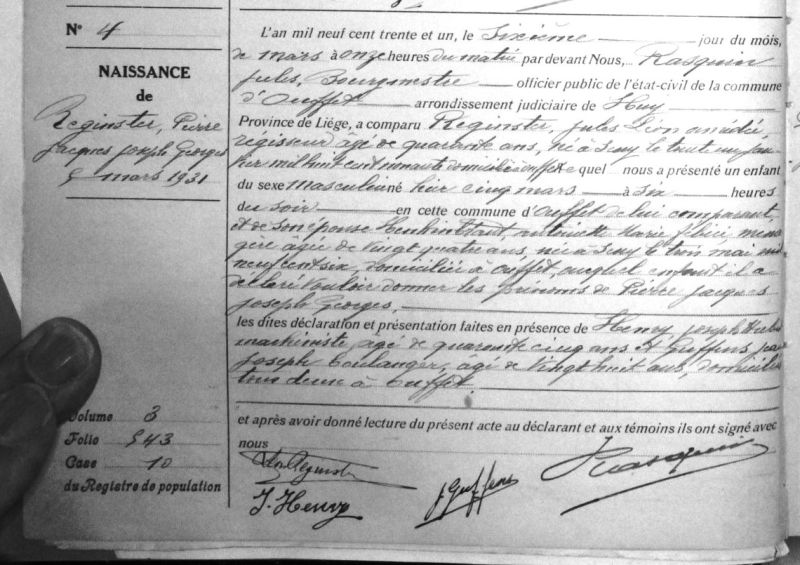 N° 4
NAISSANCE
de
Reginster, Pierre
Jacques Joseph Georges
5 mars 1931
Volume 3
Folio 543
Case 10
du Registre de population
L'an mil neuf cent trente et un, le Sixième jour du mois,
de mars à onze heures du matin par devant Nous, Rasquin
Jules, Bourgmestre officier public de l'état-civil de la commune
d'Ouffet arrondissement judiciaire de Huy
Province de Liége, a comparu Reginster, Jules Léon
régisseur âgé de quarante ans, né à Seny le trente un jan
vier mil huit cent nonante domicilié à Ouffet quel nous a présenté un enfant
du sexe masculin né hier cinq mars à six heures
du soir en cette commune d'Ouffet de lui comparant
et de son épouse Antoinette Marie ména
gère âgée de vingt quatre ans, née à Seny le trois mai mil
neuf cent six, domiciliée à Ouffet, auquel enfant il a
déclaré vouloir donner les prénoms de Pierre Jacques
Joseph Georges.
les dites déclaration et présentation faites en présence de Henry, Joseph
machiniste, âgé de quarante cinq ans et Guffens,
Joseph boulanger, âgé de vingt huit ans, domiciliés
tous deux à Ouffet.
et après avoir donné lecture du présent acte au déclarant et aux témoins ils ont signé avec
nous
J. Henry
J. Guffens
Rasquin